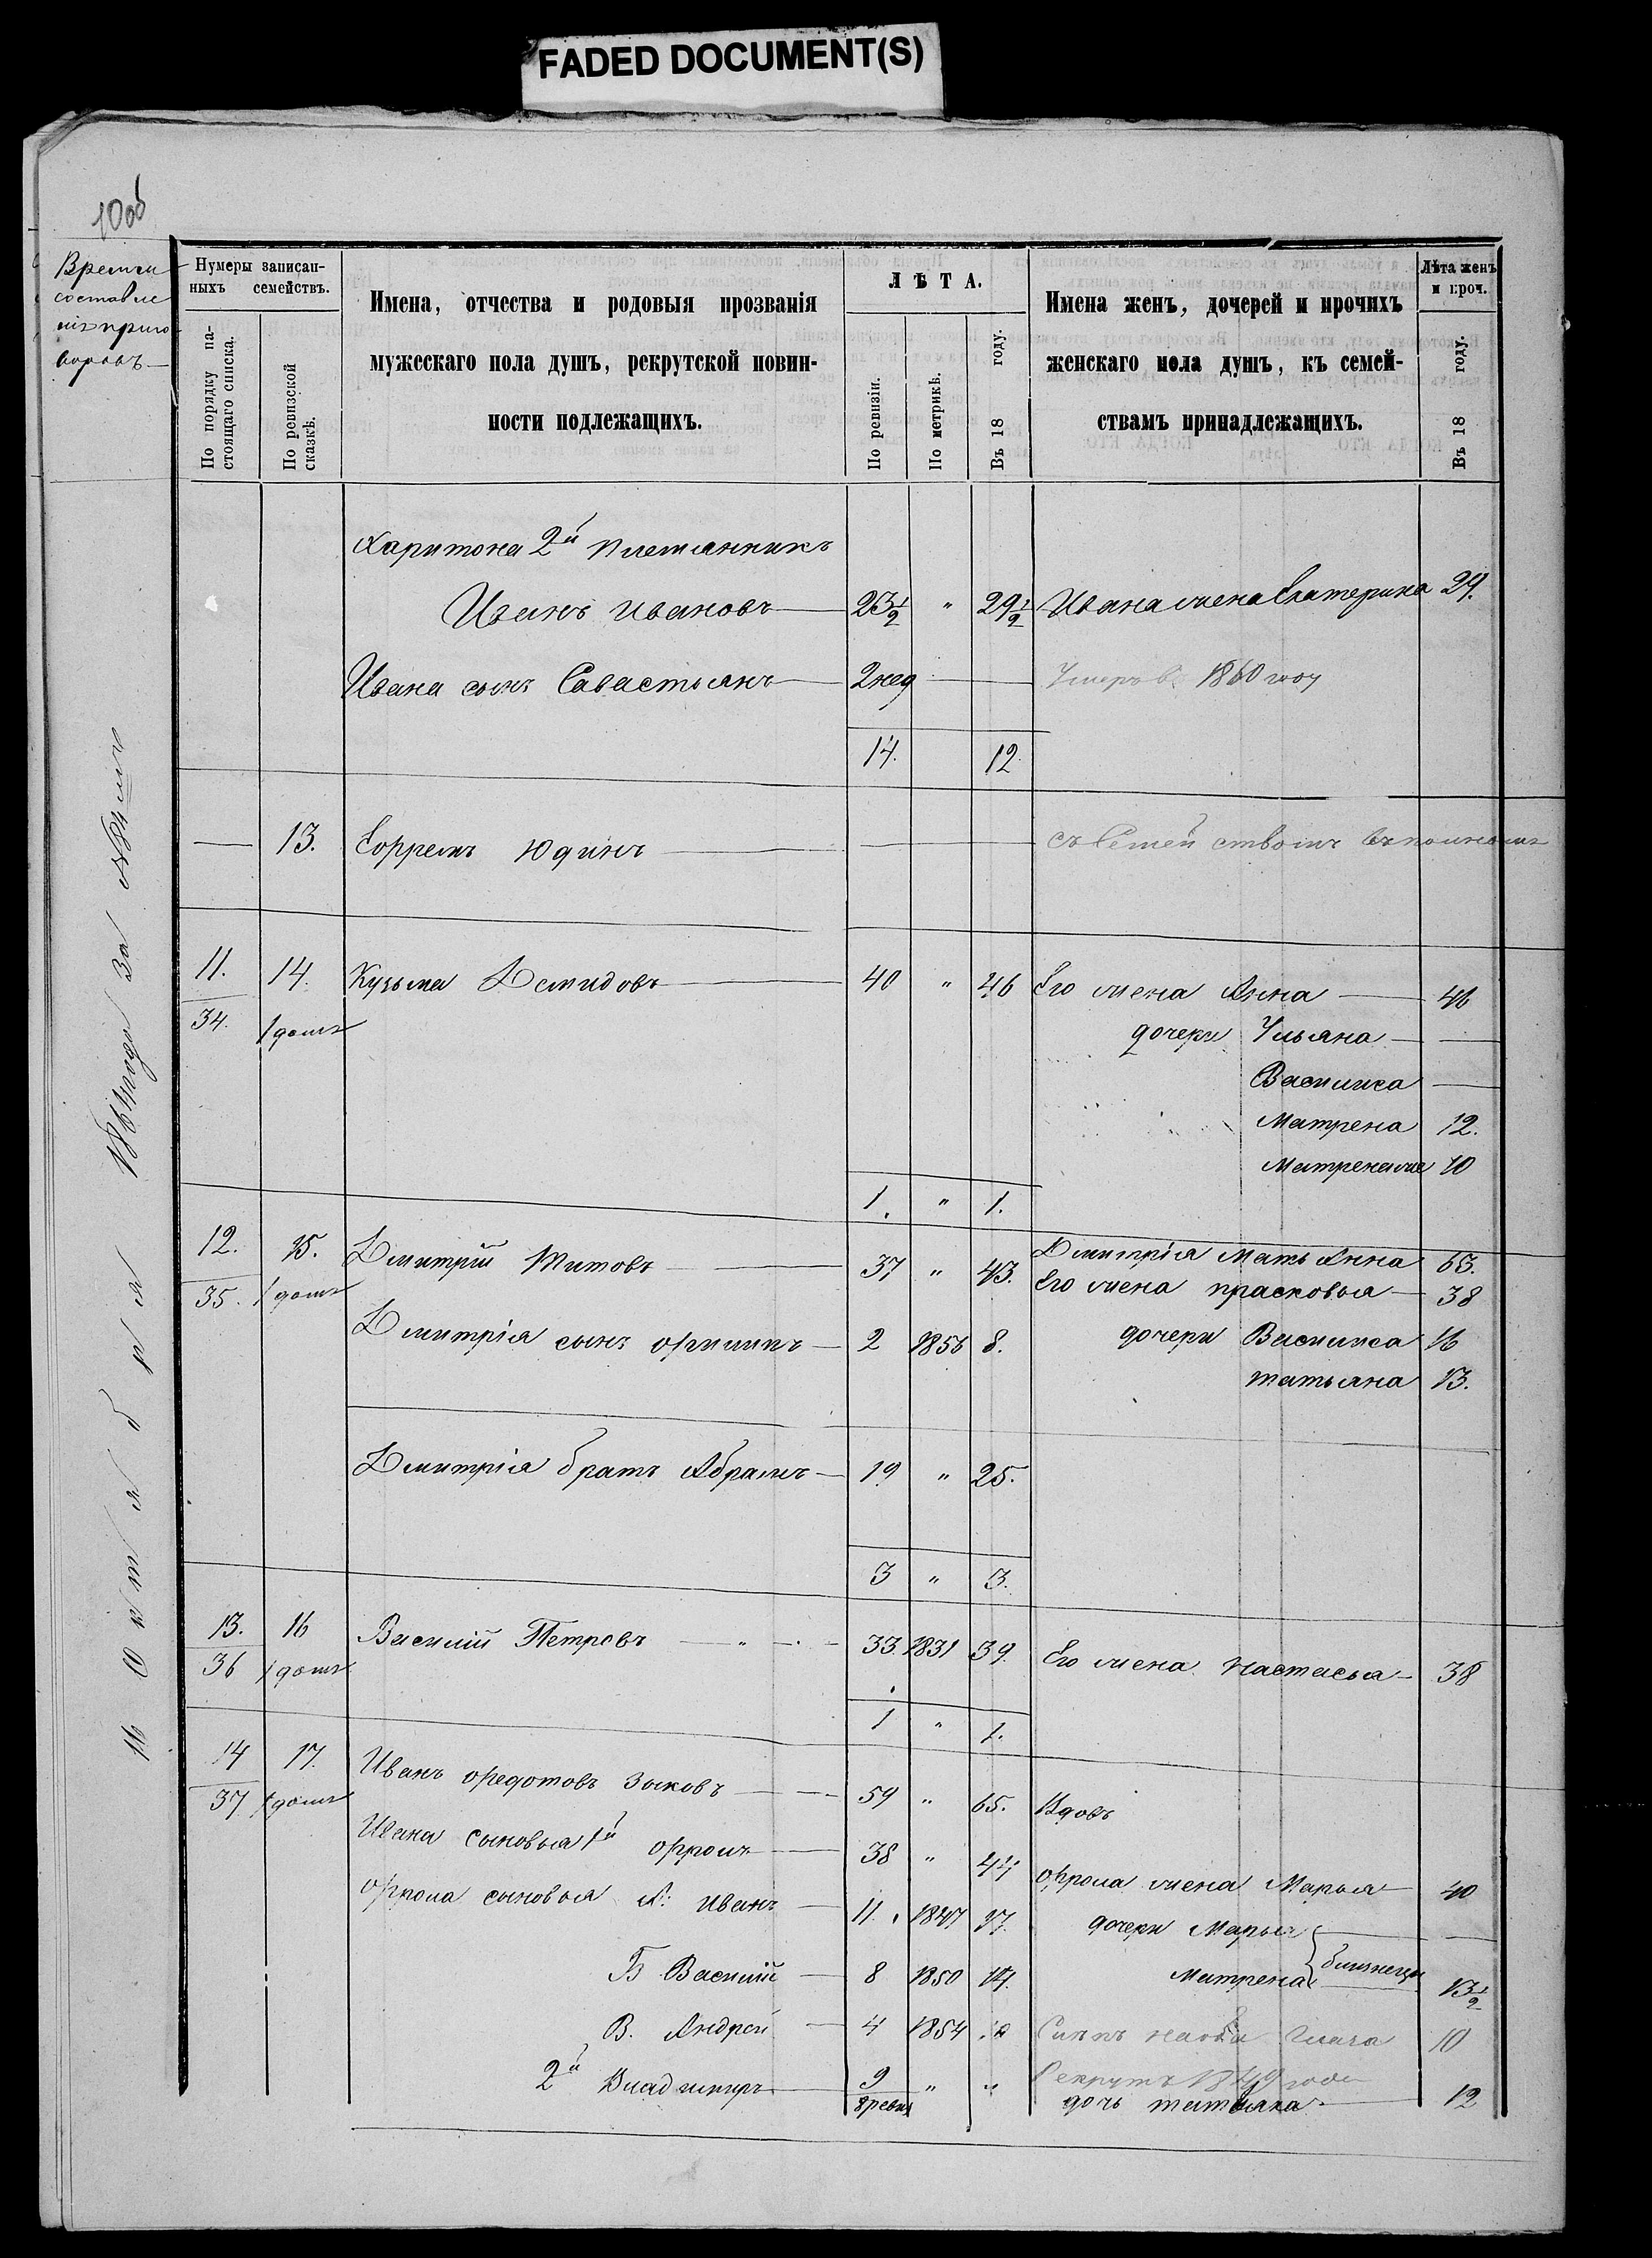 FADED DOCUMENT(S)
10об
Время
составле
нія приго
воровъ
16 Октября 1864 года за № 84
Нумеры записан-
ныхъ семействъ.
По порядку на-
стоящаго списка.
По ревизской
сказкѣ.
Имена, отчества и родовыя прозванія
мужескаго пола душъ, рекрутской повин-
ности подлежащихъ.
ЛѢТА.
По ревизіи.
По метрикѣ.
Въ 18 году.
Имена женъ, дочерей и прочихъ
женскаго пола душъ, къ семей-
ствамъ принадлежащихъ.
Лѣта женъ
и проч.
Въ 18 году.
Харитона 2й племянникъ
Иванъ Ивановъ 23½ " 29½ Ивана жена Екатерина 29.
Ивана сынъ Савастьянъ 2 нед Умеръ в 1860 году
14. 12.
13. Ефремъ Юдинъ съ Семействомъ
11. 14. Кузьма Демидовъ 40 " 46 Его жена Анна 46
34. 1 домъ дочери Ульяна
Василиса
Матрена 12.
Матрена же 10
1. " 1.
12. 15. Дмитрій Титовъ 37 " 43. Дмитрія мать Анна 63.
35. 1 домъ Его жена Прасковья 38
Дмитрія сынъ Филипъ 2 1856 8. дочери Василиса 16
Татьяна 13.
Дмитрія братъ Абрамъ 19 " 25.
3 " 3.
13. 16 Василій Петровъ 33. 1831 39. Его жена Настасья 38
36 1 домъ
1 " 1.
14 17. Иванъ Федотовъ Зыковъ 59 " 65. Вдовъ
37 1 домъ
Ивана сыновья 1й Фролъ 38 " 44 Фрола жена Марья 40
Фрола сыновья А: Иванъ 11. 1847 17. дочери Марья
Б Василій 8 1850 14. Матрена близнецы 13½
В. Андрей 4 1854 10 10
2й Владимиръ 9 " " Рекрутъ 1849 года
8 ревиз дочь Татьяна 12